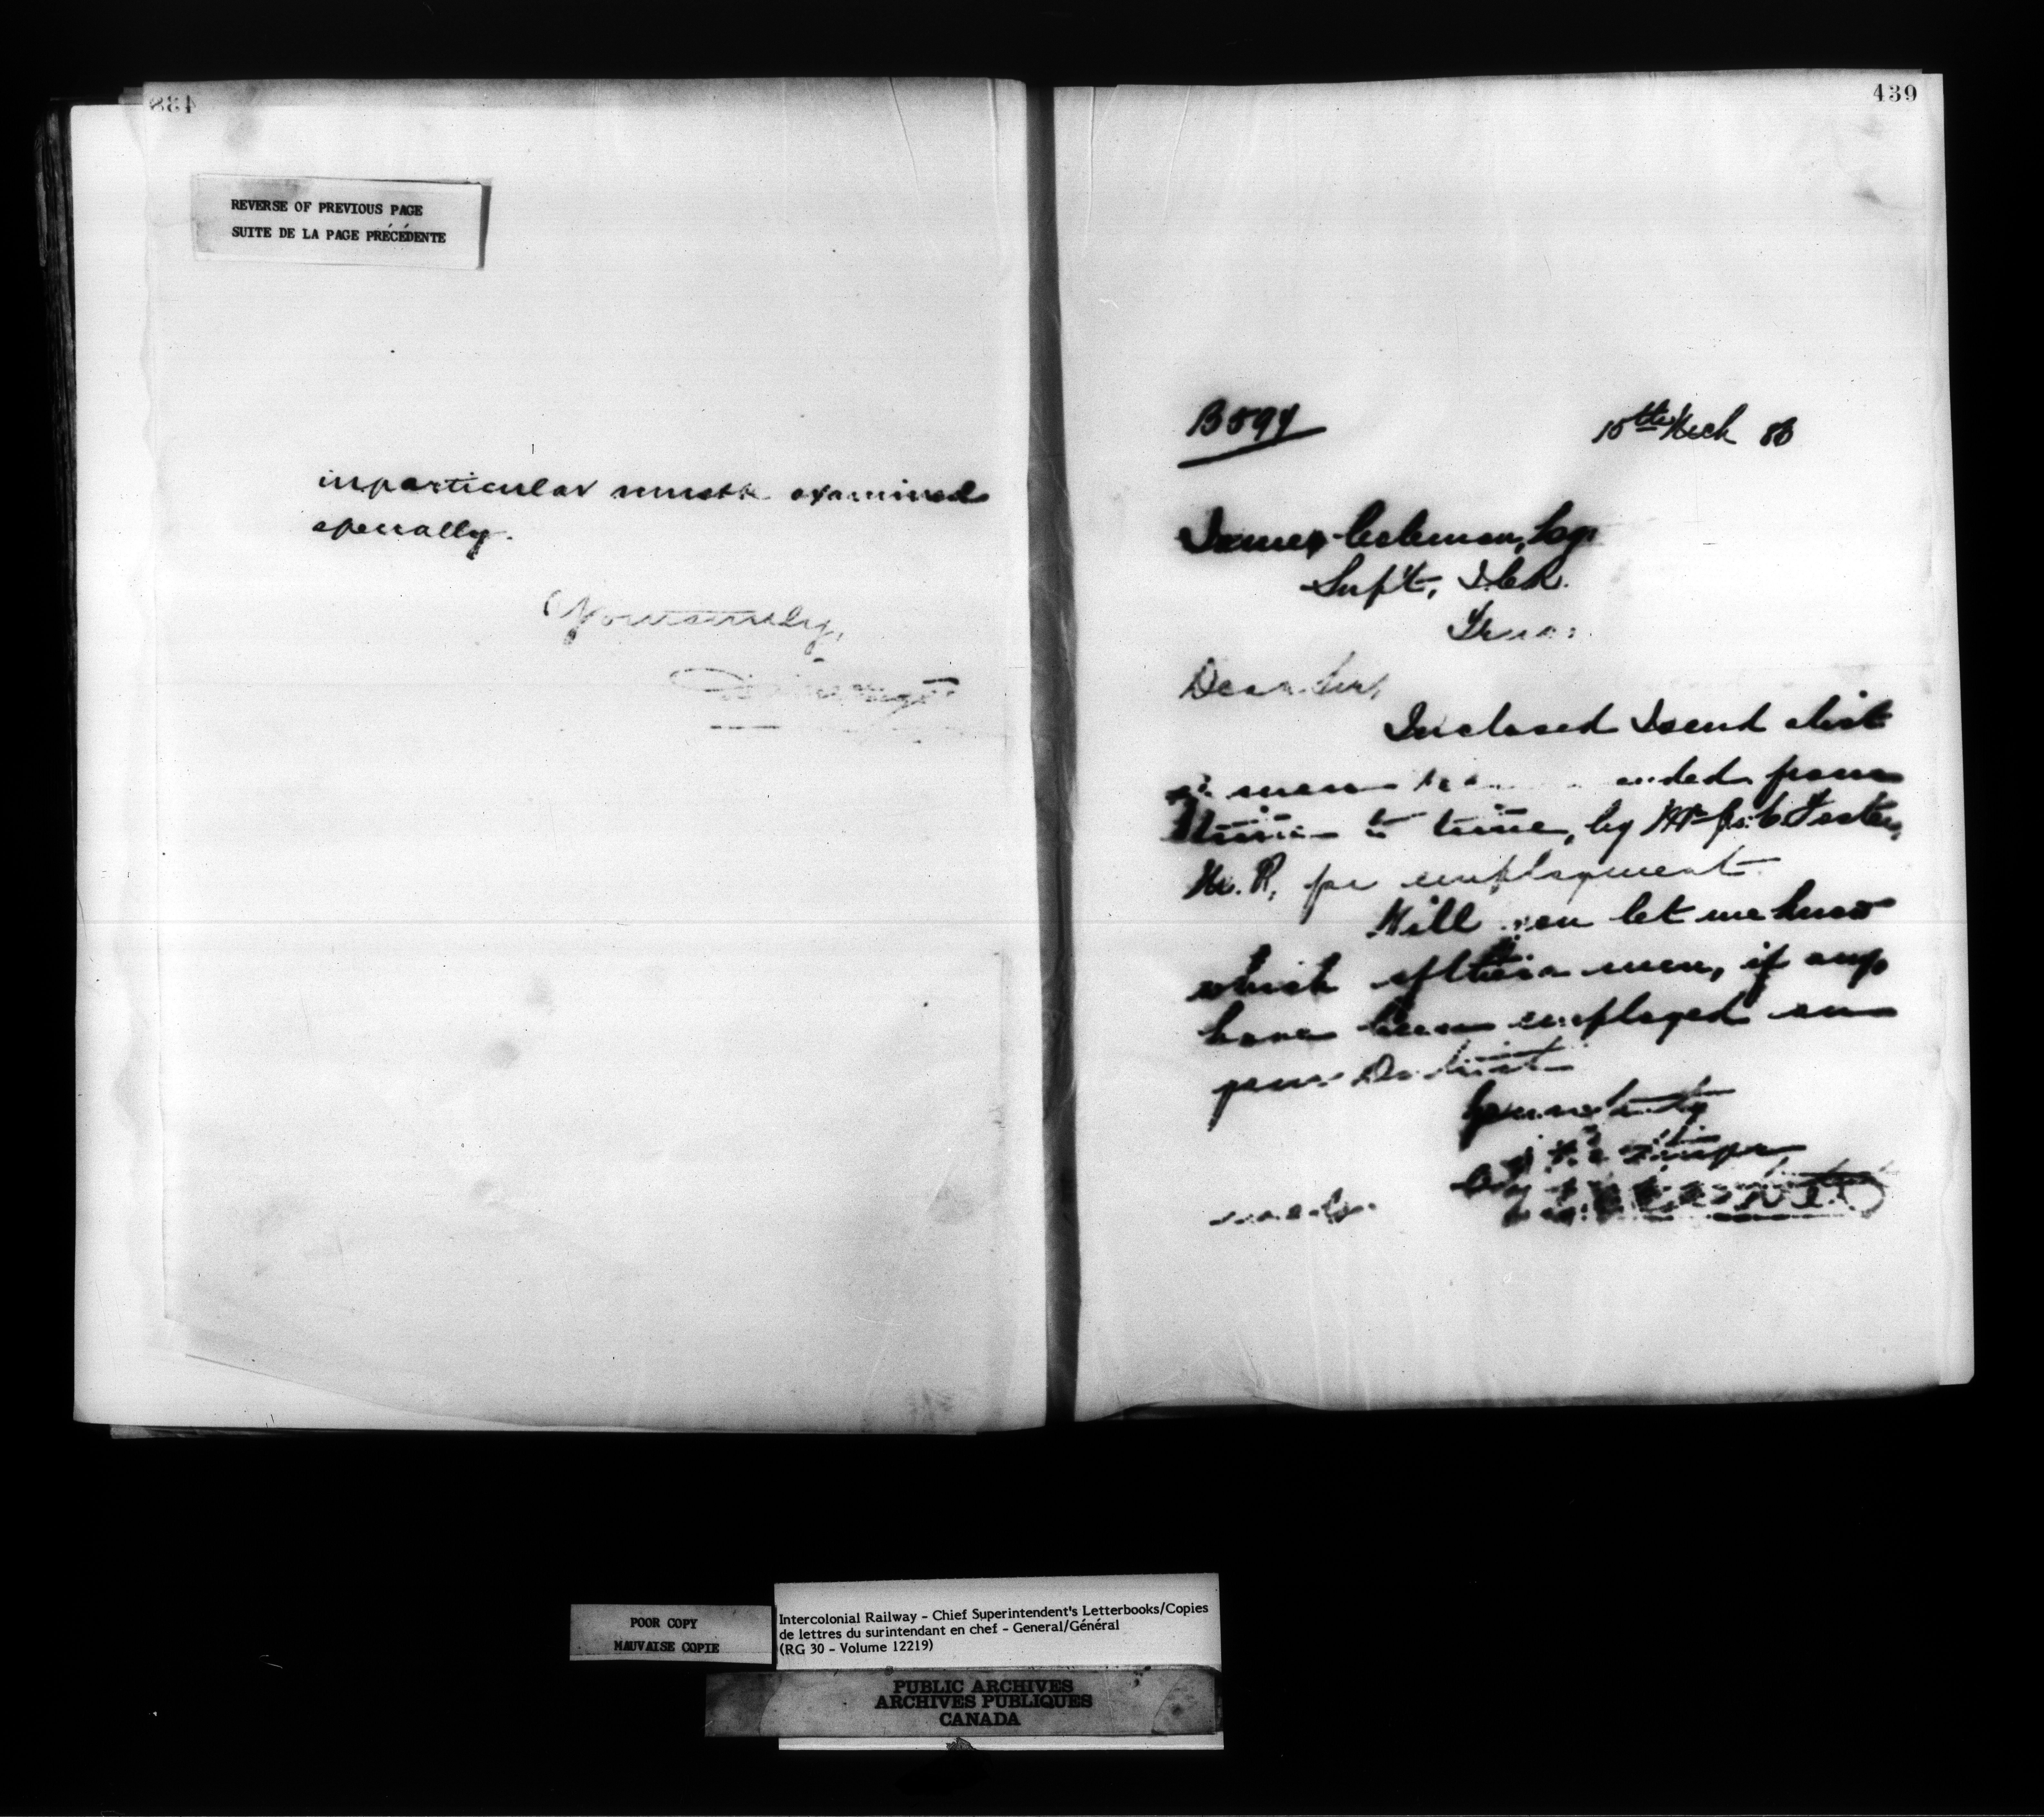 438
REVERSE OF PREVIOUS PAGE
SUITE DE LA PAGE PRÉCÉDENTE
in particular must be examined
specially.
Yours truly,
439
B594
15th Mch 86
James Coleman, Esq.
Supt, I.C.R.
Truro.
Dear Sir,
Inclosed I send a list
of men recommended from
time to time, by Mr
M.P., for employment.
Will you let me know
which of these men, if any,
have been employed on
your District
Yours truly
POOR COPY
MAUVAISE COPIE
Intercolonial Railway - Chief Superintendent's Letterbooks/Copies
de lettres du surintendant en chef - General/Général
(RG 30 - Volume 12219)
PUBLIC ARCHIVES
ARCHIVES PUBLIQUES
CANADA